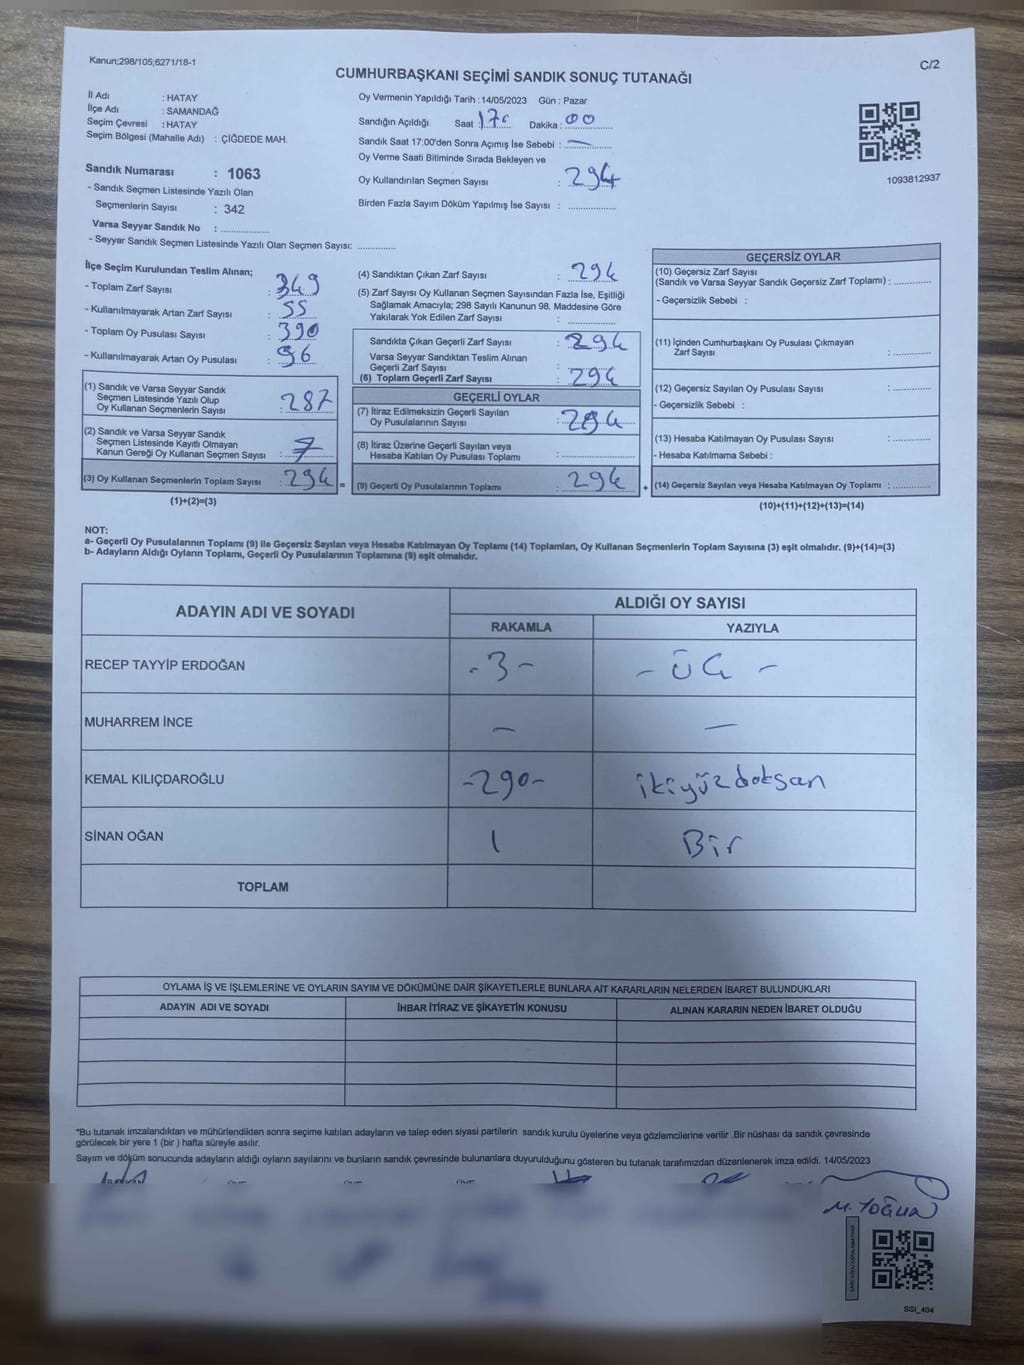 Kanun;298/105;6271/18-1
C/2
CUMHURBAŞKANI SEÇİMİ SANDIK SONUÇ TUTANAĞI
İl Adı : HATAY
İlçe Adı : SAMANDAĞ
Seçim Çevresi : HATAY
Seçim Bölgesi (Mahalle Adı) : ÇİĞDEDE MAH.
Sandık Numarası : 1063
- Sandık Seçmen Listesinde Yazılı Olan
Seçmenlerin Sayısı : 342
Varsa Seyyar Sandık No : ..............
- Seyyar Sandık Seçmen Listesinde Yazılı Olan Seçmen Sayısı: ...........
Oy Vermenin Yapıldığı Tarih : 14/05/2023 Gün : Pazar
Sandığın Açıldığı Saat : Dakika : 00
Sandık Saat 17:00'den Sonra Açımış İse Sebebi : —
Oy Verme Saati Bitiminde Sırada Bekleyen ve
Oy Kullandırılan Seçmen Sayısı : 294
Birden Fazla Sayım Döküm Yapılmış İse Sayısı : ..............
1093812937
İlçe Seçim Kurulundan Teslim Alınan;
- Toplam Zarf Sayısı : 349
- Kullanılmayarak Artan Zarf Sayısı : 55
- Toplam Oy Pusulası Sayısı : 390
- Kullanılmayarak Artan Oy Pusulası : 96
(1) Sandık ve Varsa Seyyar Sandık
Seçmen Listesinde Yazılı Olup
Oy Kullanan Seçmenlerin Sayısı : 287
(2) Sandık ve Varsa Seyyar Sandık
Seçmen Listesinde Kayıtlı Olmayan
Kanun Gereği Oy Kullanan Seçmen Sayısı : 7
(3) Oy Kullanan Seçmenlerin Toplam Sayısı : 294 =
(1)+(2)=(3)
(4) Sandıktan Çıkan Zarf Sayısı : 294
(5) Zarf Sayısı Oy Kullanan Seçmen Sayısından Fazla İse, Eşitliği
Sağlamak Amacıyla; 298 Sayılı Kanunun 98. Maddesine Göre
Yakılarak Yok Edilen Zarf Sayısı : ..............
Sandıkta Çıkan Geçerli Zarf Sayısı : 294
Varsa Seyyar Sandıktan Teslim Alınan
Geçerli Zarf Sayısı
(6) Toplam Geçerli Zarf Sayısı : 294
GEÇERLİ OYLAR
(7) İtiraz Edilmeksizin Geçerli Sayılan
Oy Pusulalarının Sayısı : 294
(8) İtiraz Üzerine Geçerli Sayılan veya
Hesaba Katılan Oy Pusulası Toplamı : ..............
(9) Geçerli Oy Pusulalarının Toplamı : 294 +
GEÇERSİZ OYLAR
(10) Geçersiz Zarf Sayısı
(Sandık ve Varsa Seyyar Sandık Geçersiz Zarf Toplamı) : ...........
- Geçersizlik Sebebi :
(11) İçinden Cumhurbaşkanı Oy Pusulası Çıkmayan
Zarf Sayısı : ...........
(12) Geçersiz Sayılan Oy Pusulası Sayısı : ...........
- Geçersizlik Sebebi :
(13) Hesaba Katılmayan Oy Pusulası Sayısı : ...........
- Hesaba Katılmama Sebebi :
(14) Geçersiz Sayılan veya Hesaba Katılmayan Oy Toplamı : ...........
(10)+(11)+(12)+(13)=(14)
NOT:
a- Geçerli Oy Pusulalarının Toplamı (9) ile Geçersiz Sayılan veya Hesaba Katılmayan Oy Toplamı (14) Toplamları, Oy Kullanan Seçmenlerin Toplam Sayısına (3) eşit olmalıdır. (9)+(14)=(3)
b- Adayların Aldığı Oyların Toplamı, Geçerli Oy Pusulalarının Toplamına (9) eşit olmalıdır.
ADAYIN ADI VE SOYADI ALDIĞI OY SAYISI
RAKAMLA YAZIYLA
RECEP TAYYİP ERDOĞAN -3- - ÜÇ -
MUHARREM İNCE — —
KEMAL KILIÇDAROĞLU -290- ikiyüzdoksan
SİNAN OĞAN 1 Bir
TOPLAM
OYLAMA İŞ VE İŞLEMLERİNE VE OYLARIN SAYIM VE DÖKÜMÜNE DAİR ŞİKAYETLERLE BUNLARA AİT KARARLARIN NELERDEN İBARET BULUNDUKLARI
ADAYIN ADI VE SOYADI İHBAR İTİRAZ VE ŞİKAYETİN KONUSU ALINAN KARARIN NEDEN İBARET OLDUĞU
*Bu tutanak imzalandıktan ve mühürlendikten sonra seçime katılan adayların ve talep eden siyasi partilerin sandık kurulu üyelerine veya gözlemcilerine verilir .Bir nüshası da sandık çevresinde
görülecek bir yere 1 (bir ) hafta süreyle asılır.
Sayım ve döküm sonucunda adayların aldığı oyların sayılarını ve bunların sandık çevresinde bulunanlara duyurulduğunu gösteren bu tutanak tarafımızdan düzenlenerek imza edildi. 14/05/2023
SSI_404